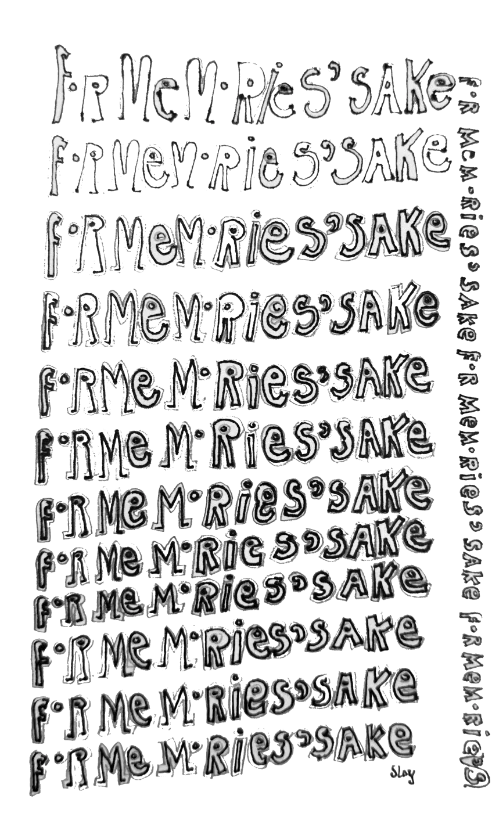 foR MeMoRies' SAKe
foR MeMoRies' SAKe
foR MeMoRies' SAKe
foR MeMoRies' SAKe
foR MeMoRies' SAKe
foR MeMoRies' SAKe
foR MeMoRies' SAKe
foR MeMoRies' SAKe
foR MeMoRies' SAKe
foR MeMoRies' SAKe
foR MeMoRies' SAKe
foR MeMoRies' SAKe
foR MeMoRies' SAKe foR MeMoRies' SAKe foR MeMoRies'